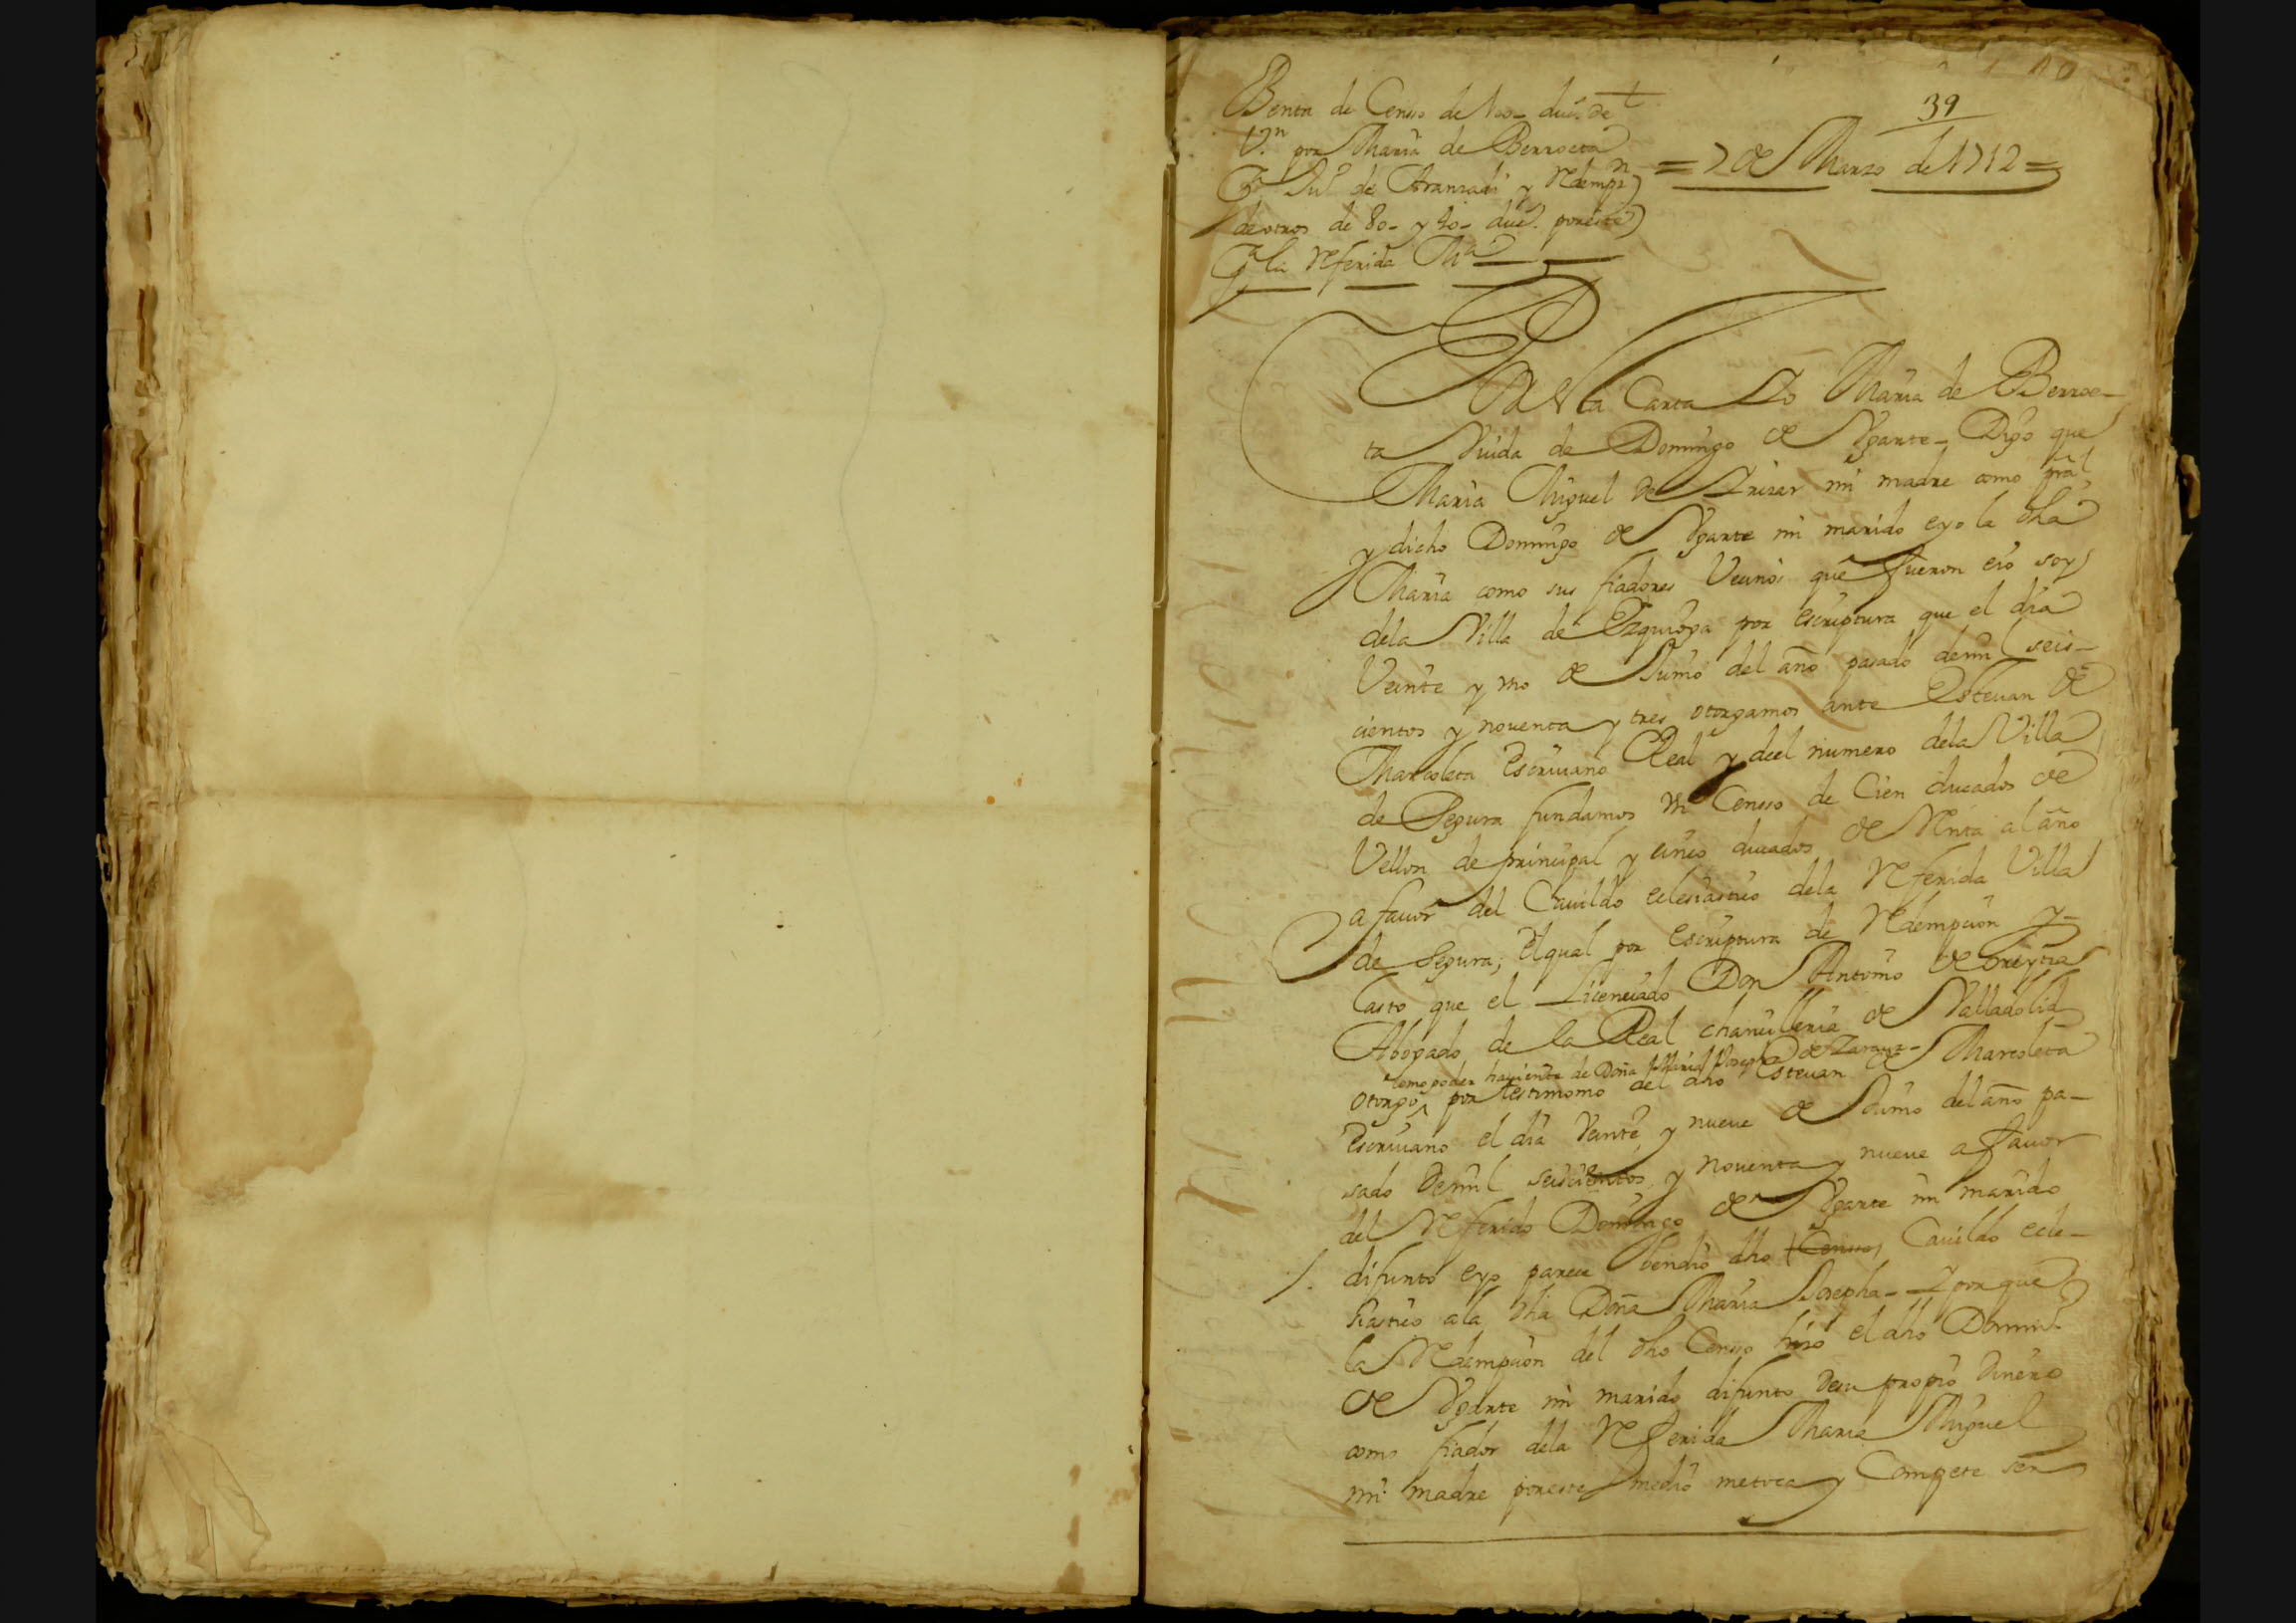 39
Benta de Censso de 100- duc.s de
V.n por Maria de Berroeta
Ju.o de Aranzadi y Redemp.n
de otros de 80- y 40- duc.s por este
la Referida M.a
= 7 de Marzo de 1712 =
esta Carta Yo Maria de Berroe-
ta Viuda de Domingo de Vgarte- Digo que
Maria Miguel de Yrizar mi madre como pral
y dicho Domingo de Vgarte mi marido e yo la dha
Maria como sus fiadores Vecinos que fueron e io soy
dela Villa de Ezquioga por escriptura que el dia
Veinte y vno de Junio del año pasado de mil seis-
cientos y nouenta y tres otorgamos ante Esteuan de
Marcoleta Escriuano Real y del numero dela Villa
de Segura fundamos vn Censso de Cien ducados de
Vellon de principal y cinco ducados de Renta al año
a fauor del Cauildo eclesiastico dela Referida Villa
de Segura; el qual por escriptura de Redempcion y
lasto que el Licenciado Don Antonio de Oreytia
Abogado de la Real chancilleria de Valladolid
como poder hauiente de Doña Maria Josepha de Zarauz-
otorgo por testimonio del dho Esteuan de Marcoleta
Escriuano el dia Veinte y nueue de Junio del año pa-
sado de mil seiscientos y nouenta y nueue a fauor
del Referido Domingo de Vgarte mi marido
difunto e yo parece vendio dho Censso Cauildo ecle-
siastico ala dha Doña Maria Josepha- Y por que
la Redempcion del dho Censso hizo el dho Doming.o
de Vgarte mi marido difunto de su propio dinero
como fiador dela Referida Maria Miguel
mi madre por este medio me toca y Compete ser